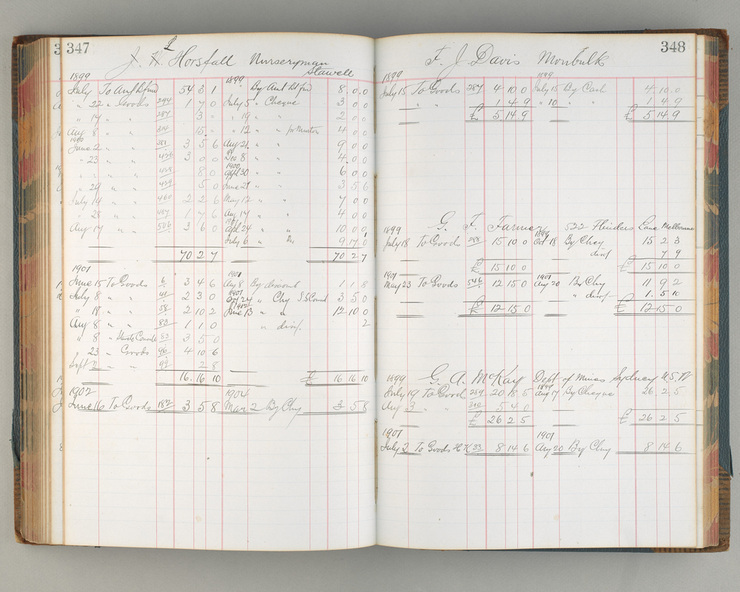 347
J. H. Horsfall Nurseryman
Stawell
1899 1899
July To Amt bt fwd 54 3 1 By Amt bt fwd 8 0 0
" 22 " Goods 1 7 0 July 5 " Cheque 3 0 0
" 19 " 2 0 0
Aug 8 " " 15 " " 12 " " 4 0 0
June 2 " " 3 5 6 Aug 21 " " 9 0 0
" 23 " " 3 0 0 " 8 " 4 0 0
" " " " 8 0 30 " 6 0 0
" 29 " " 5 0 June 3 5 6
July 14 " " 2 2 6 May 12 " " 7 0 0
" 25 " " 1 7 6 Aug 17 " " 4 0 0
Aug 17 " " 3 6 0 24 " " 10 0 0
July 6 " 9 17 0
70 2 7 70 2 7
1901 1901
June 15 To Goods 3 4 6 Aug 8 By Discount 1 1 8
July 8 " " 2 3 0 24 " Chq 3 5 0
" 18 " " 2 10 2 June 13 " " 12 10 0
Aug 8 " " 1 1 0 " disct. 2
" 8 " 3 5 0
23 " Goods 4 10 6
Sept 2 " " 2 8
16 16 10 £ 16 16 10
1902 1904
June 16 To Goods 182 3 5 8 Mar 2 By Chq 3 5 8
348
F. J. Davis Monbulk
1899 1899
July 15 To Goods 287 4 10 0 July 15 By Cash 4 10 0
" " 1 4 9 " 10 " " 1 4 9
£ 5 14 9 £ 5 14 9
G. F. Farmer 522 Flinders Lane Melbourne
1899 1899
July 18 To Goods 15 10 0 Oct 18 By Cheq 15 2 3
disct 7 9
£ 15 10 0 £ 15 10 0
1901 1901
May 23 To Goods 546 12 15 0 Aug 20 By Chq 11 9 2
" disct 1 5 10
£ 12 15 0 £ 12 15 0
G. A. McKay Dept of Mines Sydney N.S.W
1899 1899
July 19 To Goods 20 18 5 Aug 17 By Cheque 26 2 5
Aug 3 " " 5 4 0
£ 26 2 5 £ 26 2 5
1901 1901
July 2 To Goods 33 8 14 6 Aug 20 By Chq 8 14 6